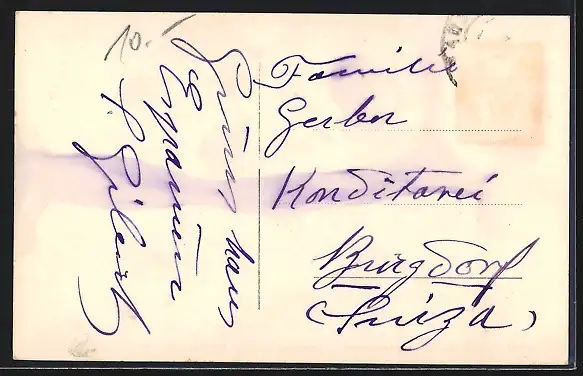 10.-
Grüsse aus
Spanien
P. Gilard
Familie
Gerber
Konditorei
Burgdorf
(Suiza)